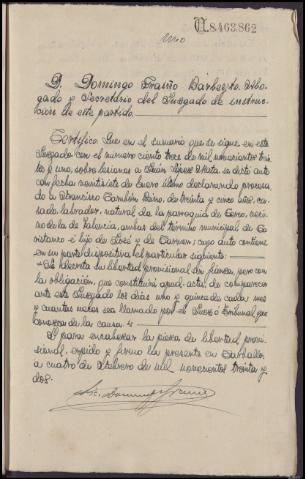 N.8463.862
uno
D. Domingo Fraiño Barbeito, Abo-
gado y Secretario del Juzgado de instruc-
ción de este partido.
Certifico: Que en el sumario que se sigue en este
Juzgado con el número ciento trece de mil novecientos trein-
ta y uno, sobre lesiones a Jesús López se dictó auto
con fecha veintisiete de Enero último declarando procesa-
do a Francisco de treinta y cinco años, ca-
sado, labrador, natural de la parroquia de Cereo, veci-
no de la de Valencia, ambas del término municipal de Co-
ristanco e hijo de José y de Carmen; cuyo auto contiene
en su parte dispositiva, el particular siguiente:
Se decreta su libertad provisional sin fianza, pero con
la obligación, que constituirá apud-acta, de comparecer
ante este Juzgado los días uno y quince de cada mes
y cuantas veces sea llamado por el Juez o Tribunal que
conozca de la causa.
Y para encabezar la pieza de libertad provi-
sional, expido y firmo la presente en Carballo,
a cuatro de Febrero de mil novecientos treinta y
dos.